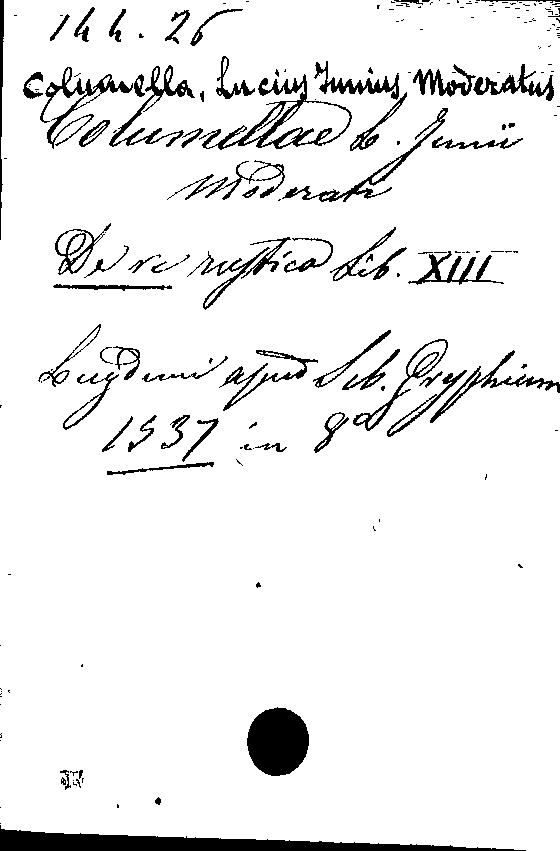 14 h. 26
Columella, Lucius Junius Moderatus
Columellae L. Junii
Moderati
De re rustica Lib. XIII
Lugduni apud Seb. Gryphium
1537 in 8o